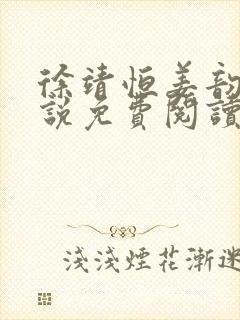 徐靖恒姜韵
說免費閱讀
淺淺煙花漸迷